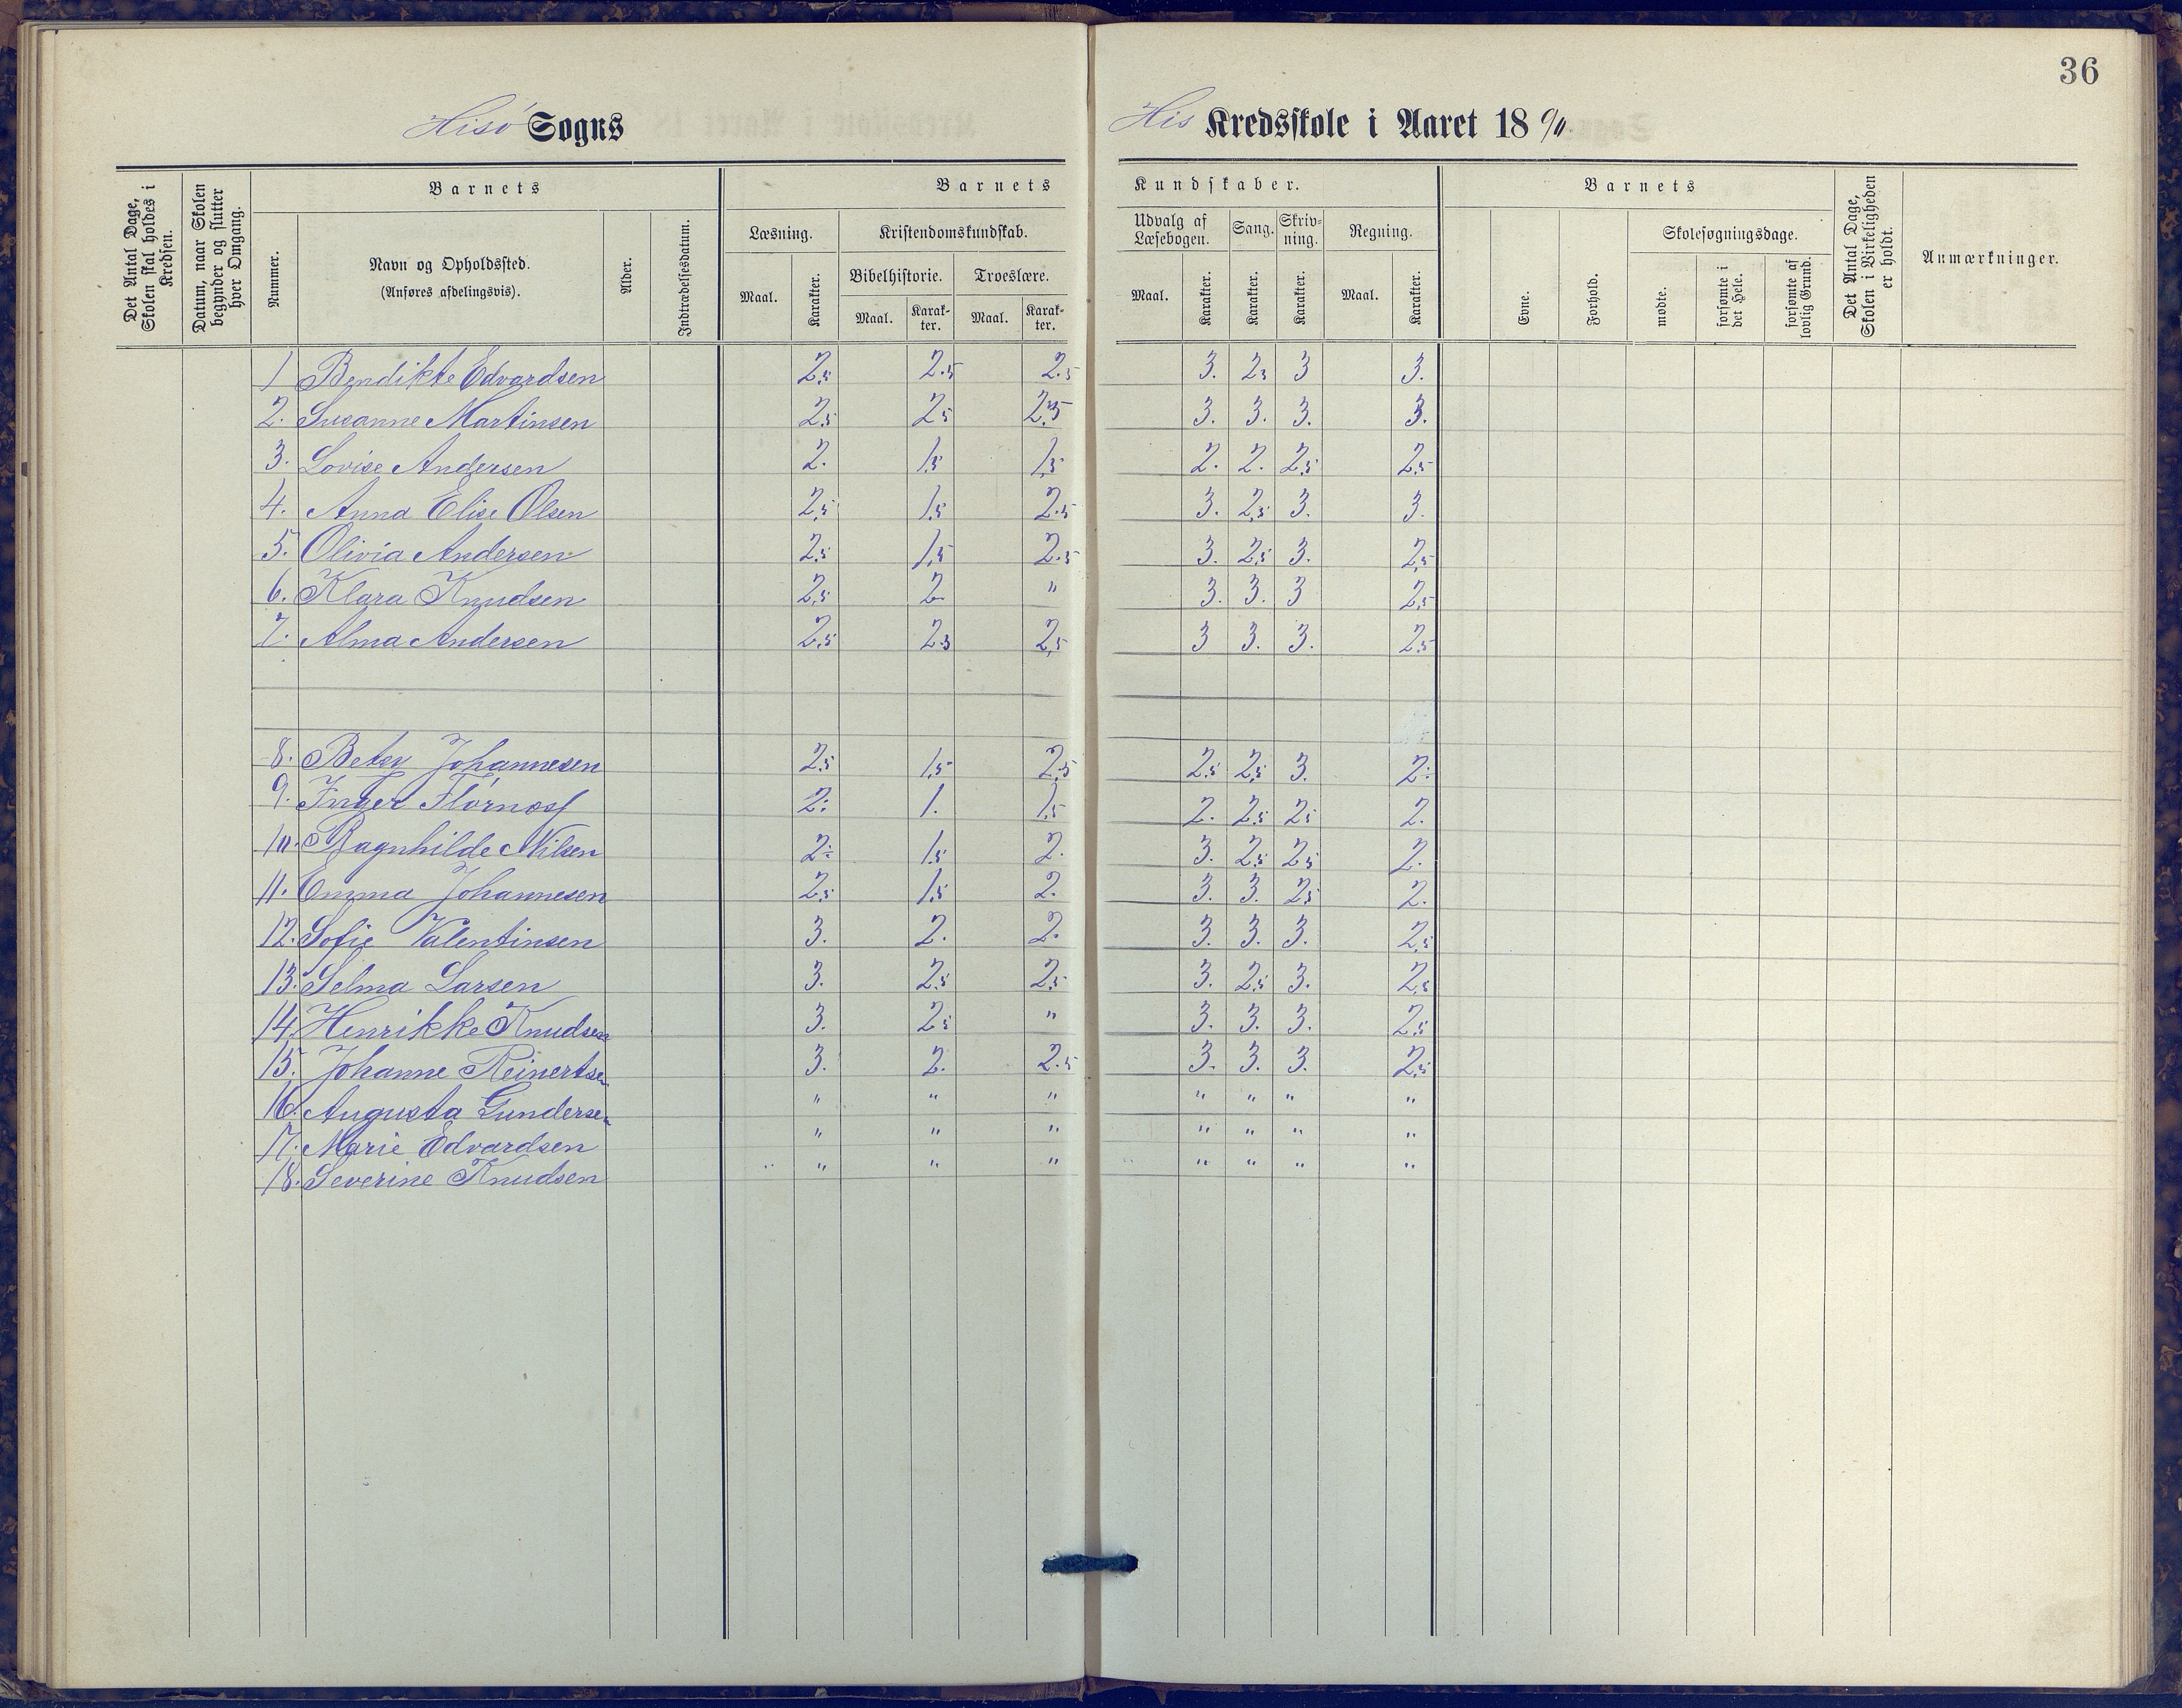 36
Hisö Sogns
His Kredsskole i Aaret 18 90.
Det Antal Dage, Skolen skal holdes i Kredsen.
Datum, naar Skolen begynder og slutter hver Omgang.
Barnets
Nummer.
Navn og Opholdssted.
(Anføres afdelingsvis).
Alder.
Indtrædelsesdatum.
Barnets Kundskaber.
Læsning.
Maal. Karakter.
Kristendomskundskab.
Bibelhistorie. Troeslære.
Maal. Karakter. Maal. Karakter.
Udvalg af Læsebogen. Sang. Skrivning. Regning.
Maal. Karakter. Karakter. Karakter. Maal. Karakter.
Barnets
Evne. Forhold.
Skolesøgningsdage.
mødte. forsømte i det Hele. forsømte af lovlig Grund.
Det Antal Dage, Skolen i Virkeligheden er holdt.
Anmærkninger.
1 Bendikte Edvardsen 2,5 2.5 2.5 3. 2,5 3 3.
2. Susanne Martinsen 2,5 2,5 2,5 3. 3. 3. 3.
3. Lovise Andersen 2. 1,5 1,5 2. 2. 2,5 2,5
4. Anna Elise Olsen 2,5 1,5 2.5 3. 2,5 3. 3.
5. Olivia Andersen 2,5 1,5 2.5 3. 2,5 3. 2,5
6. Klara Knudsen 2,5 2 " 3. 3. 3 2,5
7. Alma Andersen 2,5 2,5 2,5 3 3. 3. 2,5
8. Betsy Johannesen 2,5 1,5 2,5 2,5 2,5 3. 2.
9. Inger Flörnæs 2. 1. 1,5 2. 2,5 2,5 2.
10. Ragnhilde Nilsen 2. 1,5 2. 3. 2,5 2,5 2.
11. Emma Johannesen 2,5 1,5 2. 3. 3. 2,5 2.
12. Sofie Valentinsen 3. 2. 2. 3. 3. 3. 2,5
13. Selma Larsen 3. 2,5 2,5 3. 2,5 3. 2,5
14. Henrikke Knudsen 3. 2,5 " 3. 3. 3. 2,5
15. Johanne Reinertsen 3. 2. 2.5 3. 3. 3. 2,5
16. Augusta Gundersen " " " " " " "
17. Marie Edvardsen " " " " " " "
18. Severine Knudsen " " " " " " "